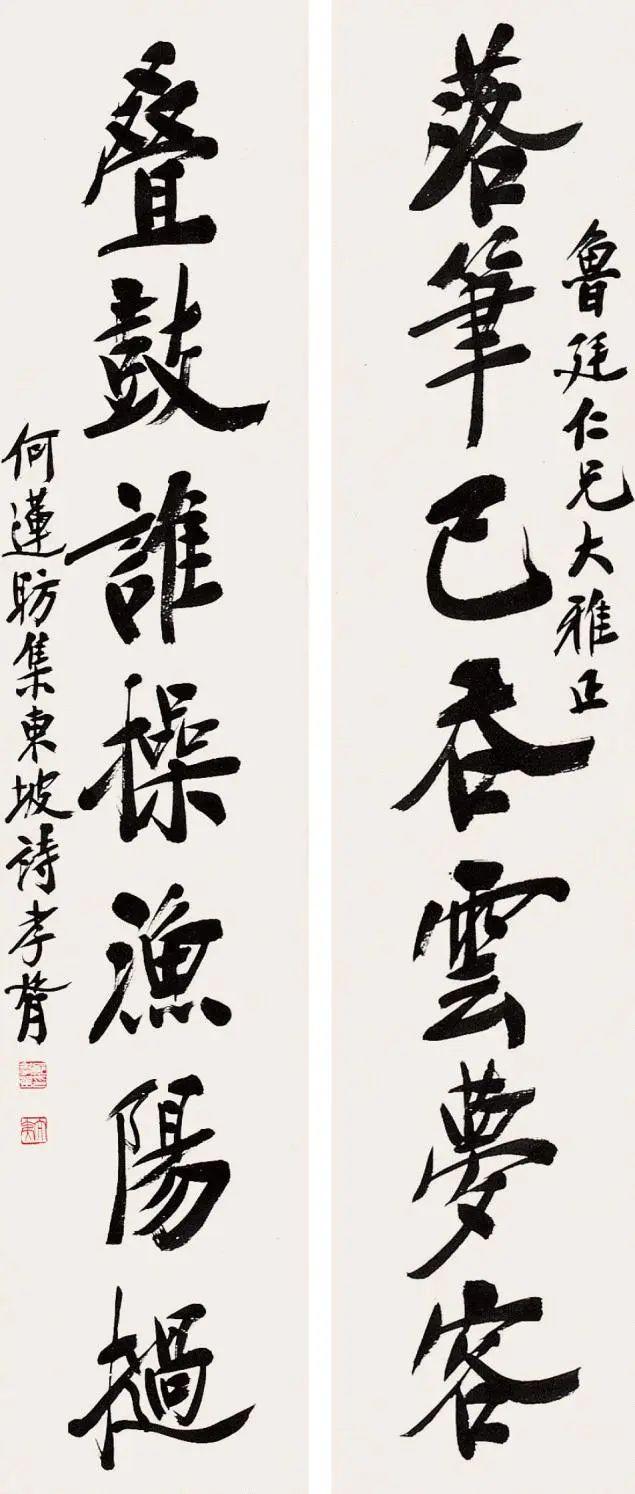 魯廷仁兄大雅正
落筆已吞雲夢客
叠鼓誰操漁陽撾
何蓮昉集東坡詩孝胥